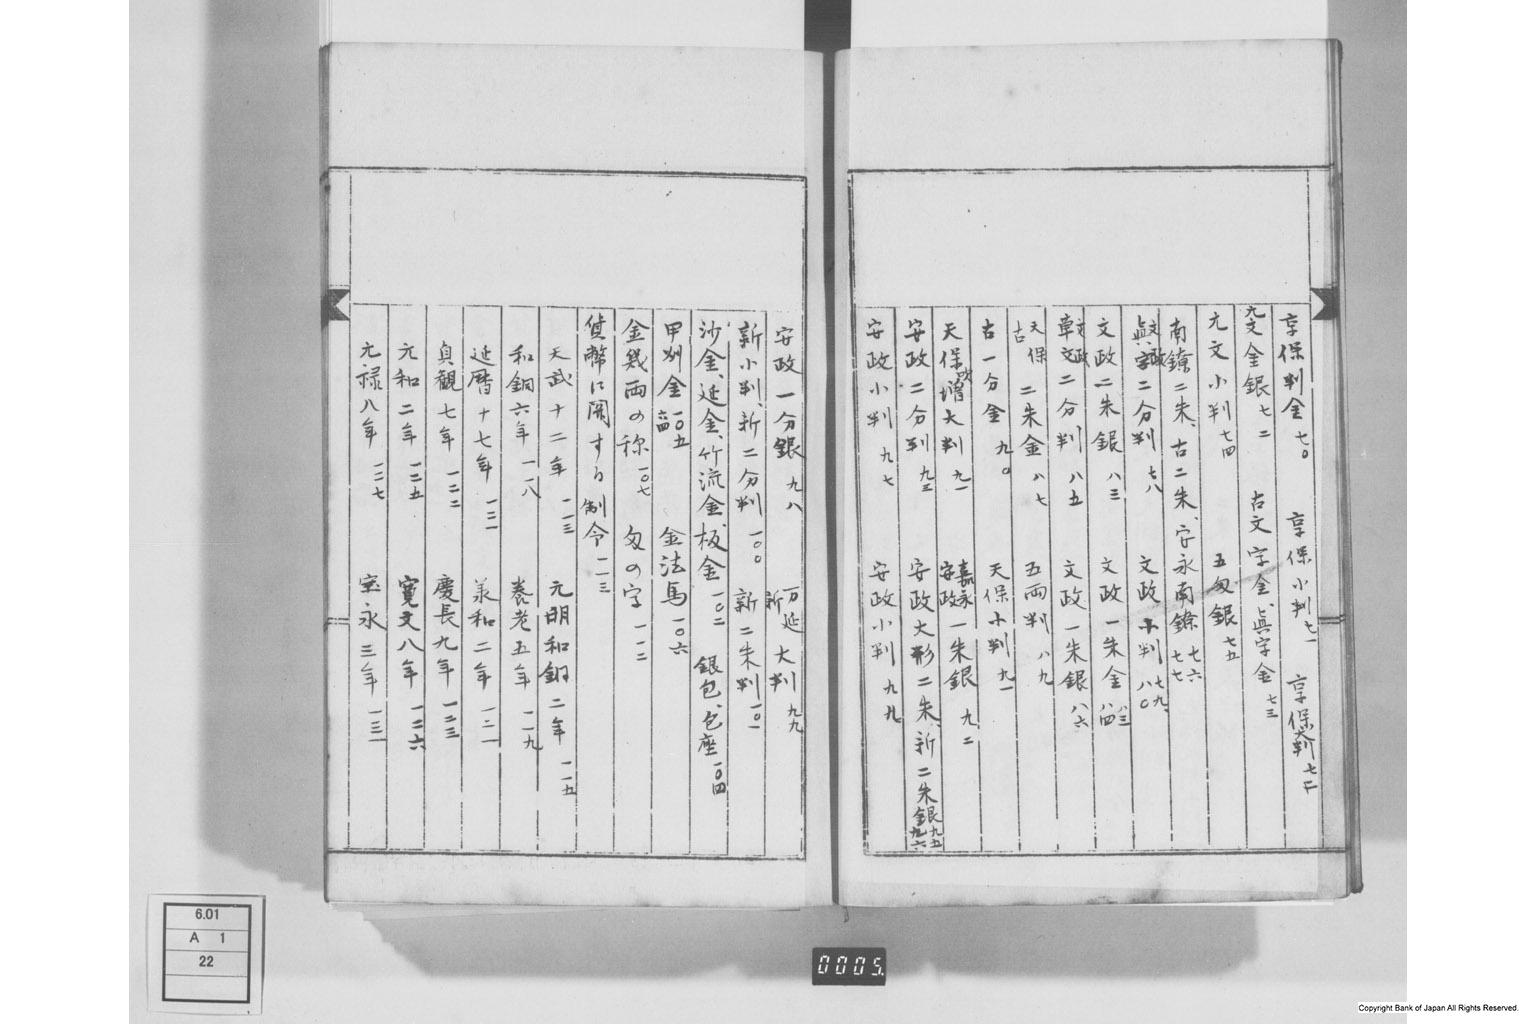 享保判金 七〇 享保小判 七一 享保大判 七二
元文金銀 七二 古文字金、真字金 七三
元文小判 七四 五匁銀 七五
南鐐二朱、古二朱、安永南鐐 七六 七七
文政真字二分判 七八 文政小判 七九、八〇
文政二朱銀 八三 文政一朱金 八三 八四
文政草文二分判 八五 文政一朱銀 八六
天保古二朱金 八七 五両判 八九
古一分金 九〇 天保小判 九一
天保増大判 九一 嘉永安政一朱銀 九二
安政二分判 九三 安政大形二朱、新二朱銀 九五 九六
安政小判 九七 安政小判 九九
安政一分銀 九八 万延新大判 九九
新小判、新二分判 一〇〇 新二朱判 一〇一
沙金、延金、竹流金、板金 一〇二 銀包、包座 一〇四
甲州金 一〇五 金法馬 一〇六
金幾両の称 一〇七 匁の字 一一二
貨幣に関する制令 一一三
天武十二年 一一三 元明和銅二年 一一五
和銅六年 一一八 養老五年 一一九
延暦十七年 一二一 承和二年 一二一
貞観七年 一二二 慶長九年 一二三
元和二年 一二五 寛文八年 一二六
元禄八年 一二七 宝永三年 一三一
6.01
A 1
22
0005.
Copyright Bank of Japan All Rights Reserved.